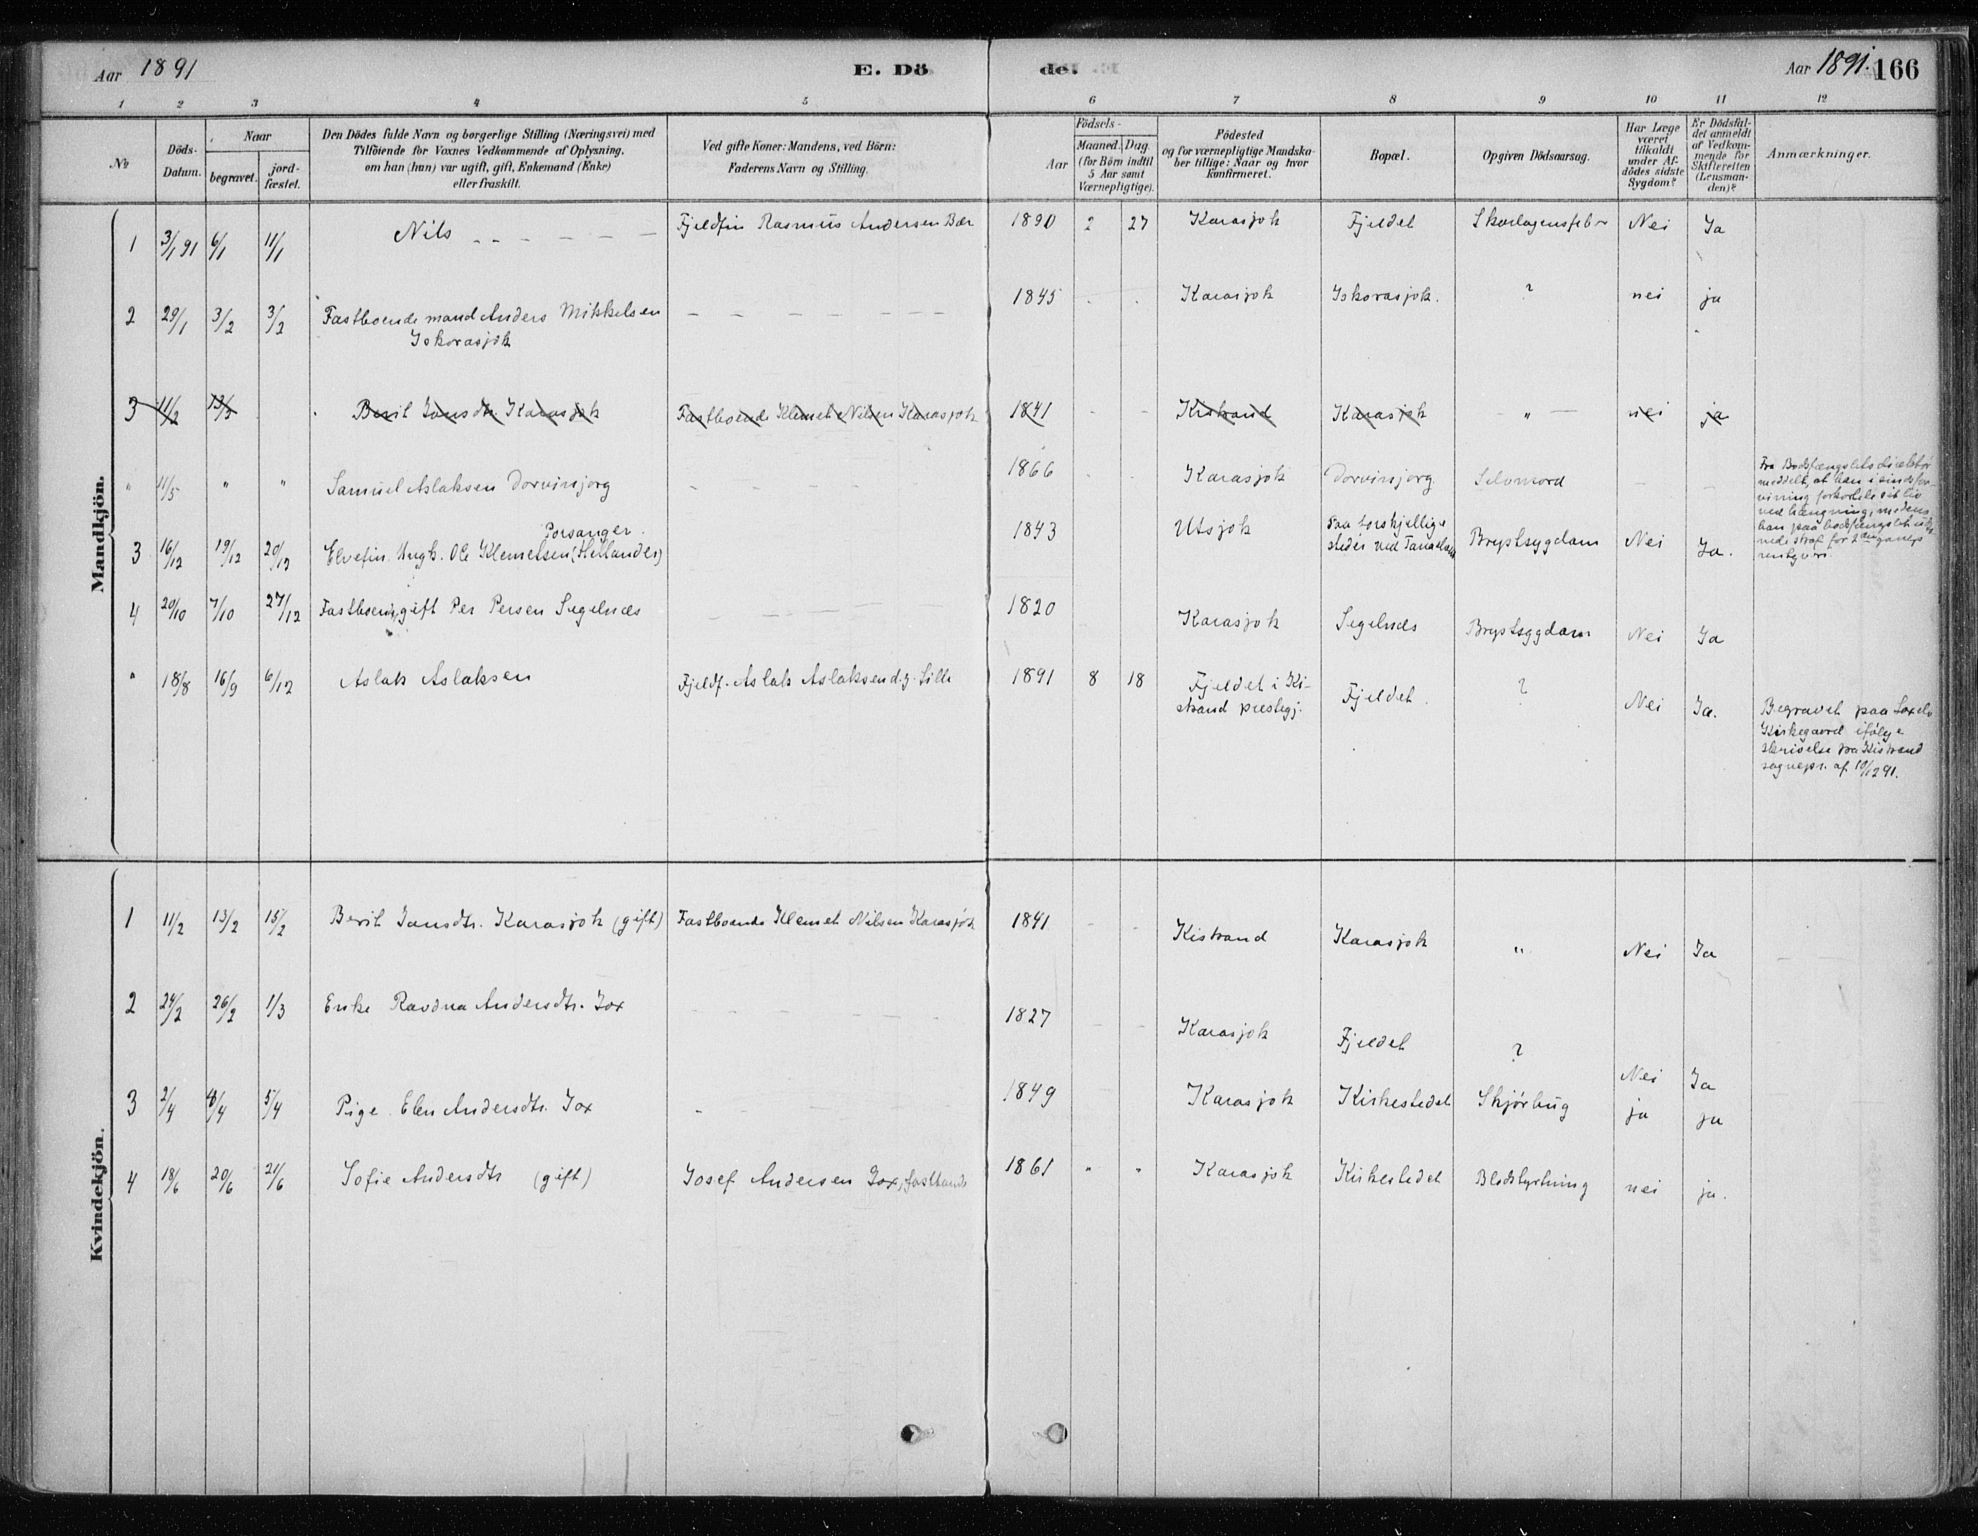 Aar 1891 E. Dö de. Aar 1891. 166
1 2 3 4 5 6 7 8 9 10 11 12
No
Döds-Datum.
Naar
begravet.
jord-fæstet.
Den Dödes fulde Navn og borgerlige Stilling (Næringsvei) med
Tilföiende for Voxnes Vedkommende af Oplysning,
om han (hun) var ugift, gift, Enkemand (Enke)
eller fraskilt.
Ved gifte Koner: Mandens, ved Börn:
Faderens Navn og Stilling.
Födsels-
Aar
Maaned. Dag.
(for Börn indtil
5 Aar samt
Værnepligtige).
Födested
og for værnepligtige Mandska-
ber tillige: Naar og hvor
konfirmeret.
Bopæl.
Opgiven Dödsaarsag.
Har Læge
været
tilkaldt
under Af-
dödes sidste
Sygdom?
Er Dödsfal-
det anmeldt
af Vedkom-
mende for
Skifteretten
(Lensman-
den)?
Anmærkninger.
Mandkjön.
1 3/1 91 6/1 11/1 Nils Fjeldfin Rasmus Andersen Bær 1890 2 27 Karasjok Fjeldet Skarlagensfeber Nei Ja
2 29/1 3/2 3/2 Fastboende mand Anders Mikkelsen
Iskorasjok
1845 Karasjok Iskorasjok. ? nei ja
3 11/2 13/2 Berit Jansdtr. Karasjok Fastboende Klemet Nilsen Karasjok 1841 - - Kistrand Karasjok " nei ja
" 11/5 " " Samuel Aslaksen Dorvinsjorg 1866 Karasjok Dorvinsjorg Selvmord - -
Fra Bodsfængslets direktør
meddelt, at han i sindsfor-
virring forkortede sit liv
ved hængning, medens
han paa bodsfængslet
straf for 2den gangs
rentyveri.
Porsanger.
3 16/12 19/12 20/12 Elvefin. Ungk. Ole Klemetsen, 1843 Utsjok Paa forskjellige
steder ved Tanaelven Brystsygdam Nei Ja.
4 20/10 7/10 27/12 Fastboende, gift Per Persen Segelnæs 1820 Karasjok Segelnæs Brystsygdam Nei Ja
" 18/8 16/9 6/12 Aslak Aslaksen Fjeldf. Aslak Aslaksen d.y. Sille 1891 8 18 Fjeldet i Ki-
strand prestegj. Fjeldet. ? Nei Ja.
Begravet paa Laxelv
Kirkegaard ifølge
skrivelse fra Kistrand
sognepr. af 10/12 91.
Kvindekjön.
1 11/2 13/2 15/2 Berit Jansdtr. Karasjok (gift) Fastboende Klemet Nilsen Karasjok 1841 - - Kistrand Karasjok " Nei Ja
2 24/2 26/2 1/3 Enke Ravdna Andersdtr. Jox 1827 Karasjok Fjeldet ? Nei Ja
3 2/4 4/4 5/4 Pige. Elen Andersdtr. Jox - 1849 Karasjok Kirkestedet Skjørbug ja ja
4 18/6 20/6 21/6 Sofie Andersdtr (gift) Josef Andersen Jox, fastboende 1861 " " Karasjok Kirkestedet Blodstyrtning nei ja.